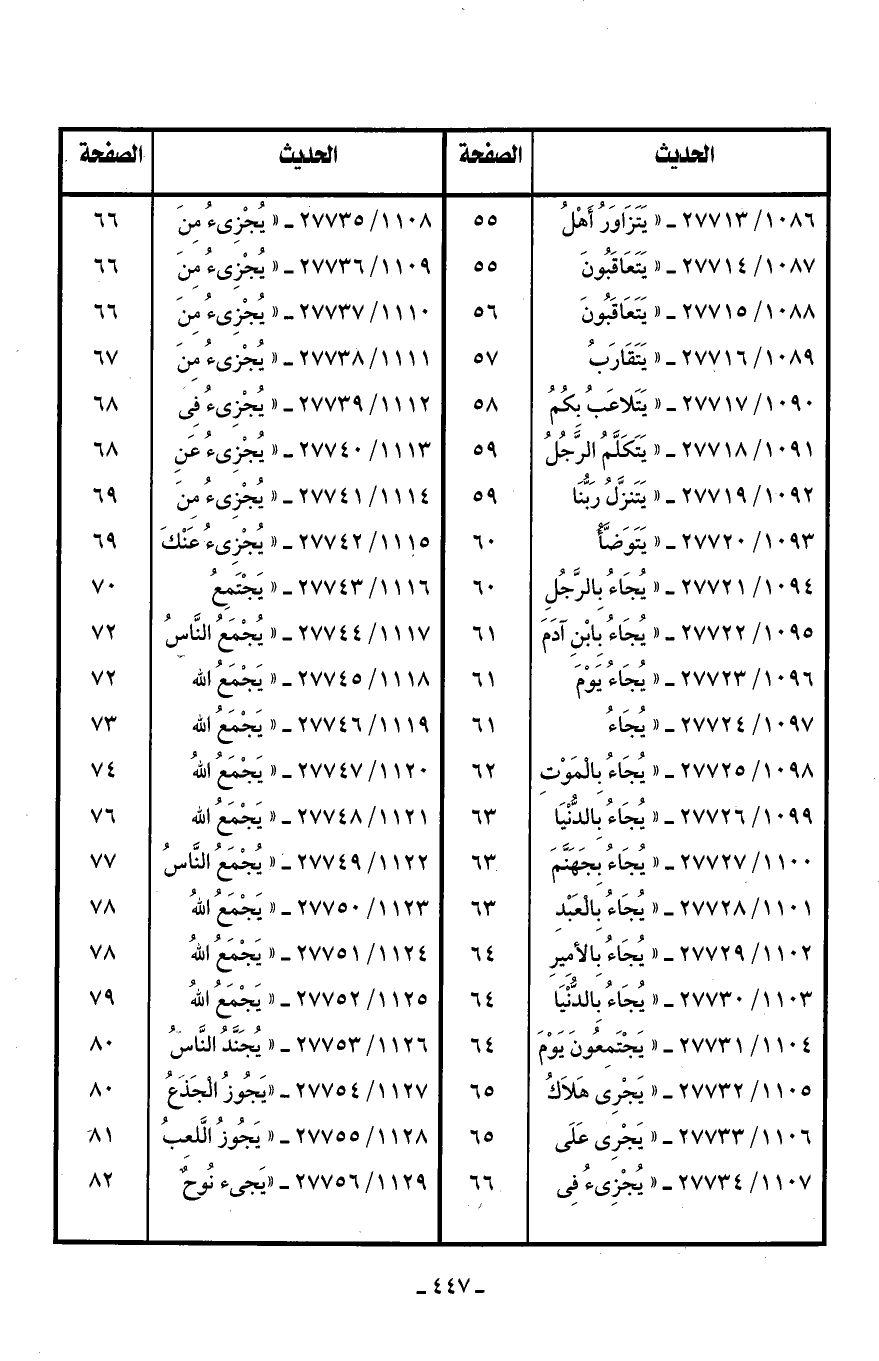 الحديث الصفحة الحديث الصفحة
١٠٨٦/ ٢٧٧١٣ ـ « يَتَزَاوَرُ أَهْلُ ٥٥ ١١٠٨/ ٢٧٧٣٥ ـ « يُجْزِىءُ مِنَ ٦٦
١٠٨٧/ ٢٧٧١٤ ـ « يَتَعَاقَبُونَ ٥٥ ١١٠٩/ ٢٧٧٣٦ ـ « يُجْزِىءُ مِنَ ٦٦
١٠٨٨/ ٢٧٧١٥ ـ « يَتَعَاقَبُونَ ٥٦ ١١١٠/ ٢٧٧٣٧ ـ « يُجْزِىءُ مِنَ ٦٦
١٠٨٩/ ٢٧٧١٦ ـ « يَتَقَارَبُ ٥٧ ١١١١/ ٢٧٧٣٨ ـ « يُجْزِىءُ مِنَ ٦٧
١٠٩٠/ ٢٧٧١٧ ـ « يَتَلاعَبُ بِكُمُ ٥٨ ١١١٢/ ٢٧٧٣٩ ـ « يُجْزِىءُ فِى ٦٨
١٠٩١/ ٢٧٧١٨ ـ « يَتَكَلَّمُ الرَّجُلُ ٥٩ ١١١٣/ ٢٧٧٤٠ ـ « يُجْزِىءُ عَنِ ٦٨
١٠٩٢/ ٢٧٧١٩ ـ « يَتَنزَّلُ رَبُّنَا ٥٩ ١١١٤/ ٢٧٧٤١ ـ « يُجْزِىءُ مِنَ ٦٩
١٠٩٣/ ٢٧٧٢٠ ـ « يَتَوَضَّأُ ٦٠ ١١١٥/ ٢٧٧٤٢ ـ « يُجْزِىءُ عَنْكَ ٦٩
١٠٩٤/ ٢٧٧٢١ ـ « يُجَاءُ بِالرَّجُلِ ٦٠ ١١١٦/ ٢٧٧٤٣ ـ « يَجْتَمِعُ ٧٠
١٠٩٥/ ٢٧٧٢٢ ـ « يُجَاءُ بِابْنِ آدَمَ ٦١ ١١١٧/ ٢٧٧٤٤ ـ « يُجْمَعُ النَّاسُ ٧٢
١٠٩٦/ ٢٧٧٢٣ ـ « يُجَاءُ يَوْمَ ٦١ ١١١٨/ ٢٧٧٤٥ ـ « يَجْمَعُ الله ٧٢
١٠٩٧/ ٢٧٧٢٤ ـ « يُجَاءُ ٦١ ١١١٩/ ٢٧٧٤٦ ـ « يَجْمَعُ الله ٧٣
١٠٩٨/ ٢٧٧٢٥ ـ « يُجَاءُ بِالْمَوْتِ ٦٢ ١١٢٠/ ٢٧٧٤٧ ـ « يَجْمَعُ اللهُ ٧٤
١٠٩٩/ ٢٧٧٢٦ ـ « يُجَاءُ بِالدُّنْيَا ٦٣ ١١٢١/ ٢٧٧٤٨ ـ « يَجْمَعُ الله ٧٦
١١٠٠/ ٢٧٧٢٧ ـ « يُجَاءُ بِجَهَنَّمَ ٦٣ ١١٢٢/ ٢٧٧٤٩ ـ « يُجْمَعُ النَّاسُ ٧٧
١١٠١/ ٢٧٧٢٨ ـ « يُجَاءُ بِالْعَبْدِ ٦٣ ١١٢٣/ ٢٧٧٥٠ ـ « يَجْمَعُ اللهُ ٧٨
١١٠٢/ ٢٧٧٢٩ ـ « يُجَاءُ بِالأمِيرِ ٦٤ ١١٢٤/ ٢٧٧٥١ ـ « يَجْمَعُ اللهُ ٧٨
١١٠٣/ ٢٧٧٣٠ ـ « يُجَاءُ بِالدُّنْيَا ٦٤ ١١٢٥/ ٢٧٧٥٢ ـ « يَجْمَعُ اللهُ ٧٩
١١٠٤/ ٢٧٧٣١ ـ « يَجْتَمِعُونَ يَوْمَ ٦٤ ١١٢٦/ ٢٧٧٥٣ ـ « يُجَنَّدُ النَّاسُ ٨٠
١١٠٥/ ٢٧٧٣٢ ـ « يَجْرِى هَلاَكُ ٦٥ ١١٢٧/ ٢٧٧٥٤ ـ «يَجُوزُ الْجَذَعُ ٨٠
١١٠٦/ ٢٧٧٣٣ ـ « يَجْرِى عَلَى ٦٥ ١١٢٨/ ٢٧٧٥٥ ـ « يَجُوزُ الَّلعِبُ ٨١
١١٠٧/ ٢٧٧٣٤ ـ « يُجْزِىءُ فِى ٦٦ ١١٢٩/ ٢٧٧٥٦ ـ «يَجىء نُوحٌ ٨٢
ـ ٤٤٧ ـ